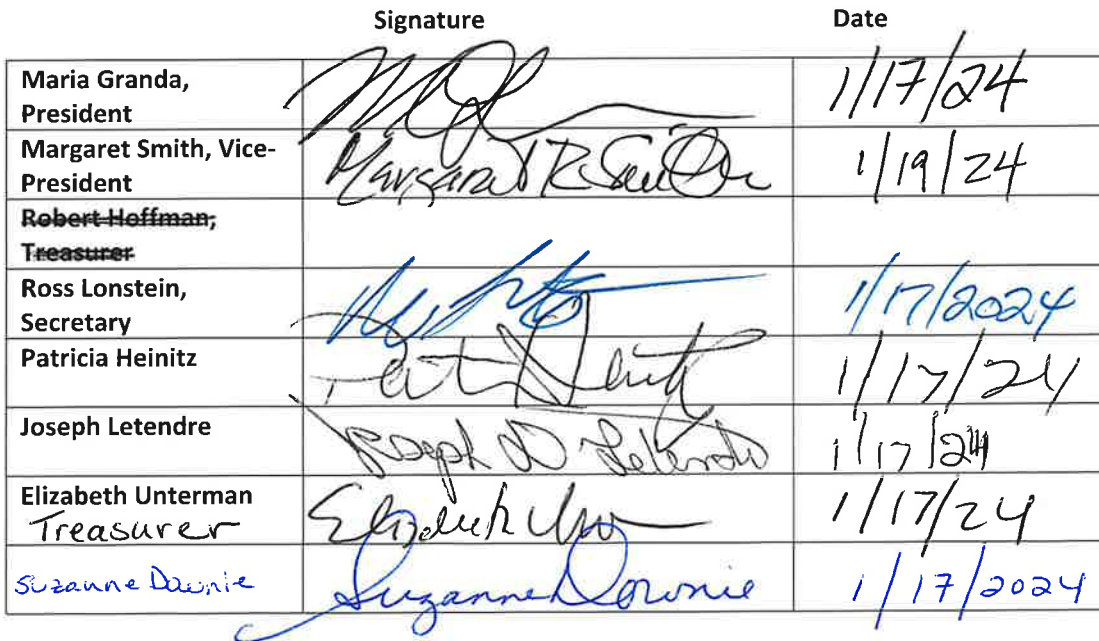 Signature Date
Maria Granda,
President
1/17/24
Margaret Smith, Vice-
President
Margaret R. Smith
1/19/24
Robert Hoffman,
Treasurer
Ross Lonstein,
Secretary
1/17/2024
Patricia Heinitz
1/17/24
Joseph Letendre
Joseph D Letendre
1/17/24
Elizabeth Unterman
Treasurer
Elizabeth
1/17/24
Suzanne Downie
Suzanne Downie
1/17/2024